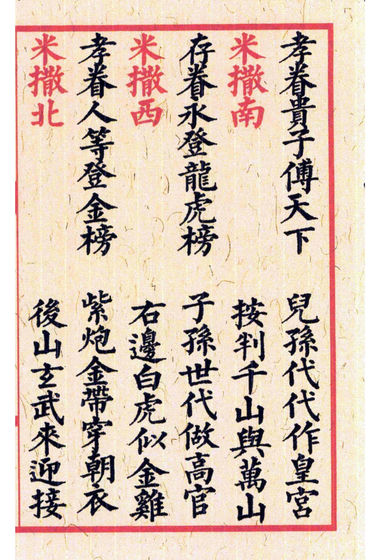 孝眷貴子傅天下 兒孫代代作皇宮
米撒南 按判千山與萬山
存眷永登龍虎榜 子孫世代做高官
米撒西 右邊白虎似金雞
孝眷人等登金榜 紫炮金帶穿朝衣
米撒北 後山玄武來迎接